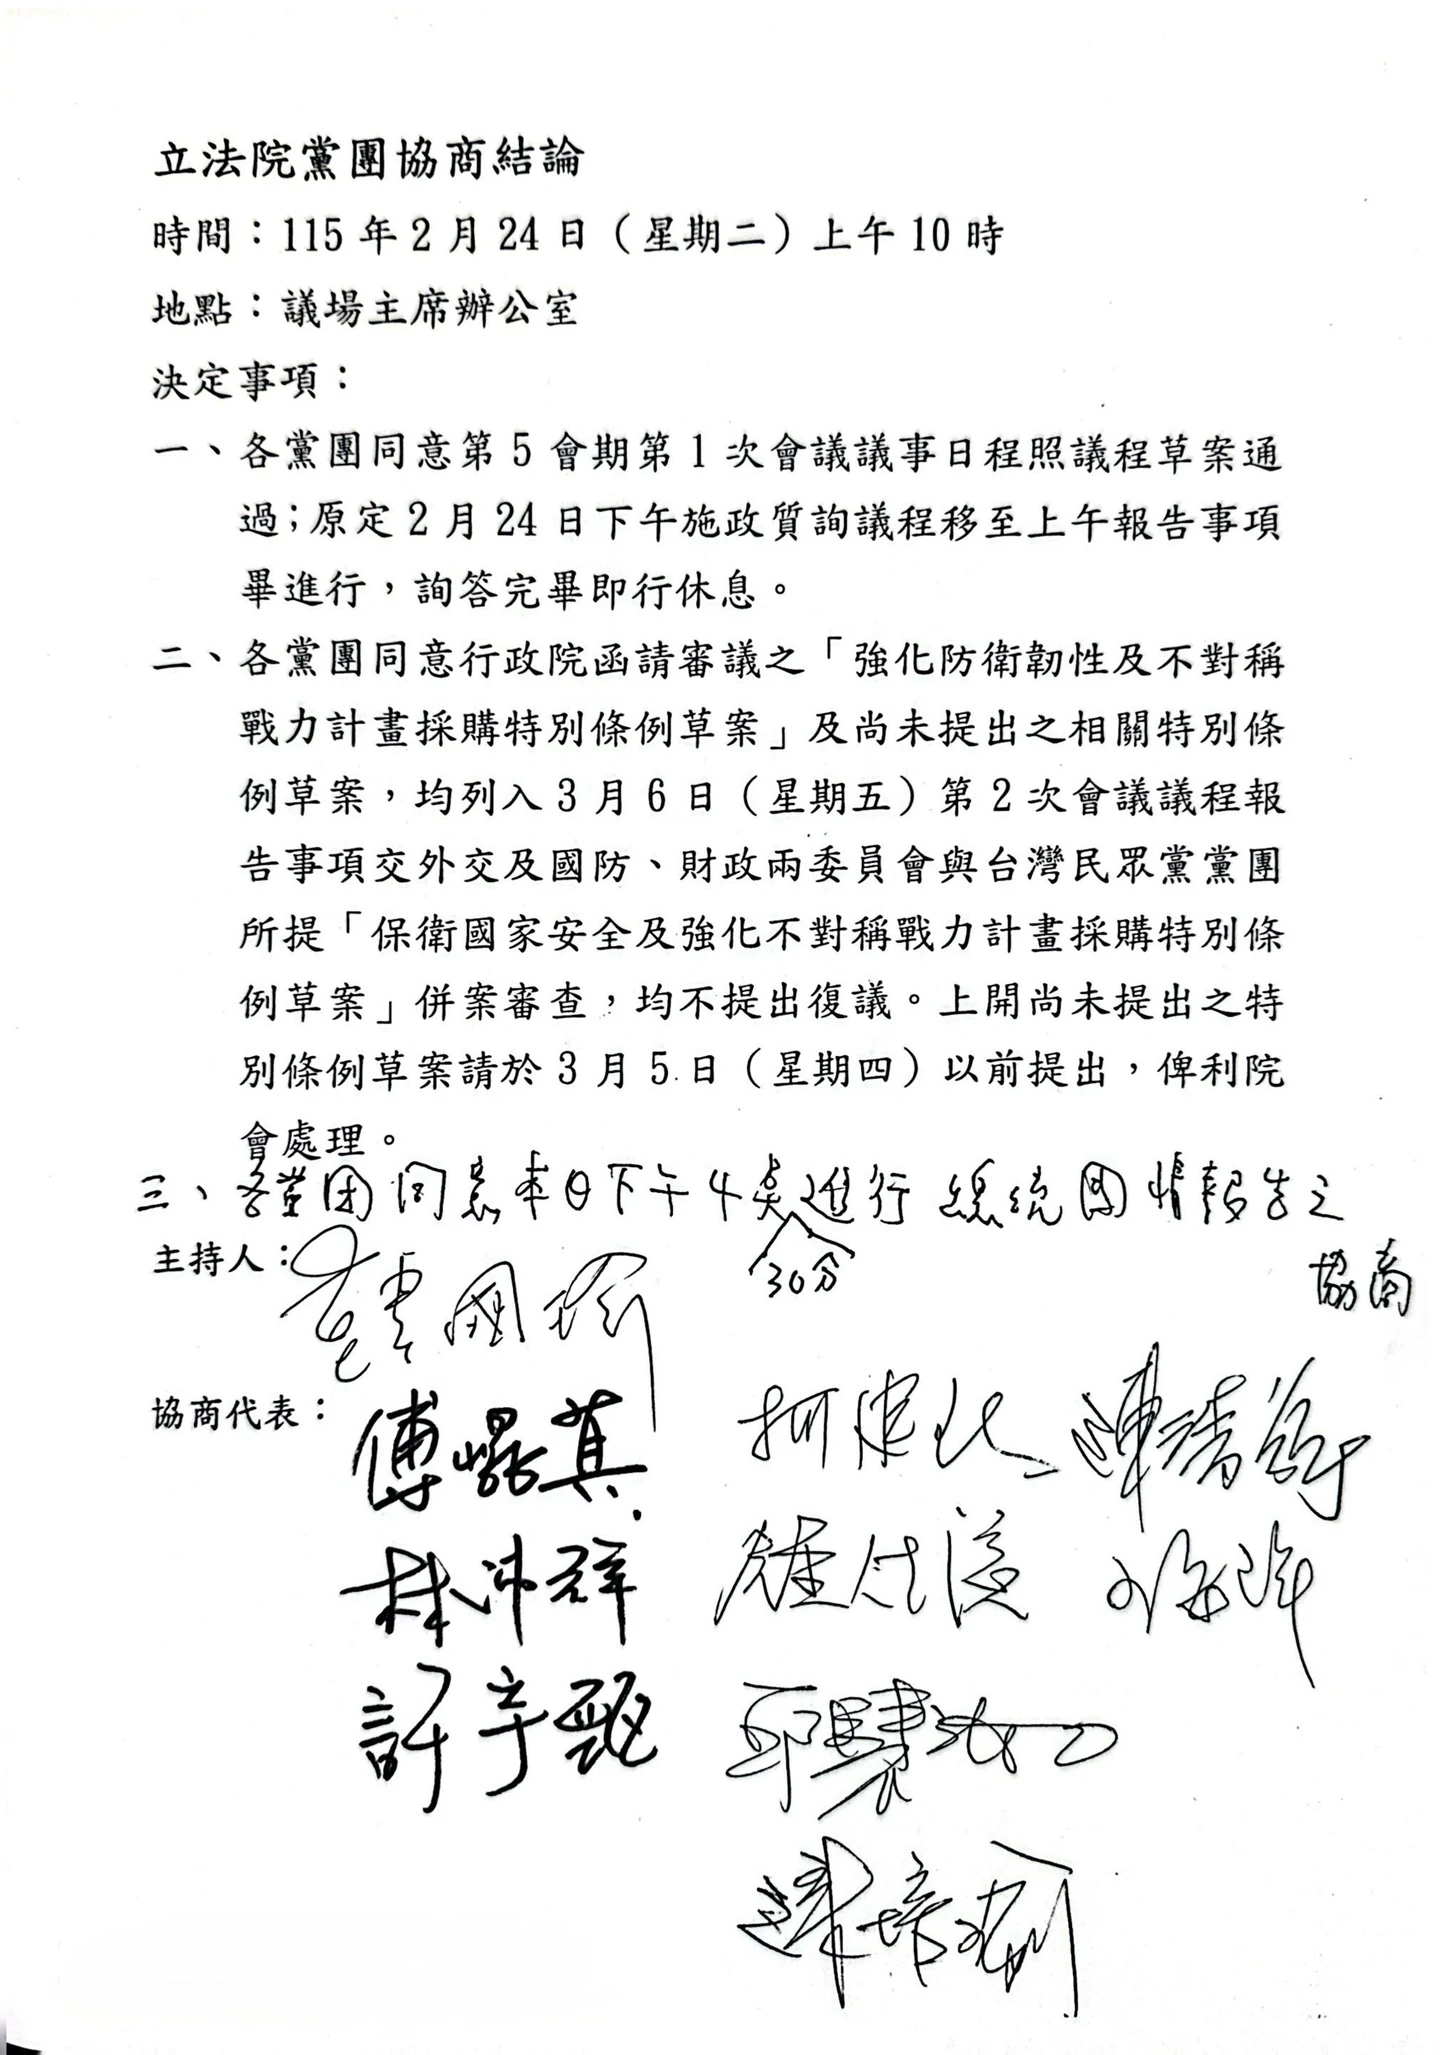 立法院黨團協商結論
時間：115年2月24日（星期二）上午10時
地點：議場主席辦公室
決定事項：
一、各黨團同意第5會期第1次會議議事日程照議程草案通
過；原定2月24日下午施政質詢議程移至上午報告事項
畢進行，詢答完畢即行休息。
二、各黨團同意行政院函請審議之「強化防衛韌性及不對稱
戰力計畫採購特別條例草案」及尚未提出之相關特別條
例草案，均列入3月6日（星期五）第2次會議議程報
告事項交外交及國防、財政兩委員會與台灣民眾黨黨團
所提「保衛國家安全及強化不對稱戰力計畫採購特別條
例草案」併案審查，均不提出復議。上開尚未提出之特
別條例草案請於3月5日（星期四）以前提出，俾利院
會處理。
三、各党团同意本日下午4点進行總統國情報告之
30分
協商
主持人：韓國瑜
協商代表：傅崐萁 柯建銘 陳清龍
林沛祥 鍾佳濱
許宇甄
陳培瑜